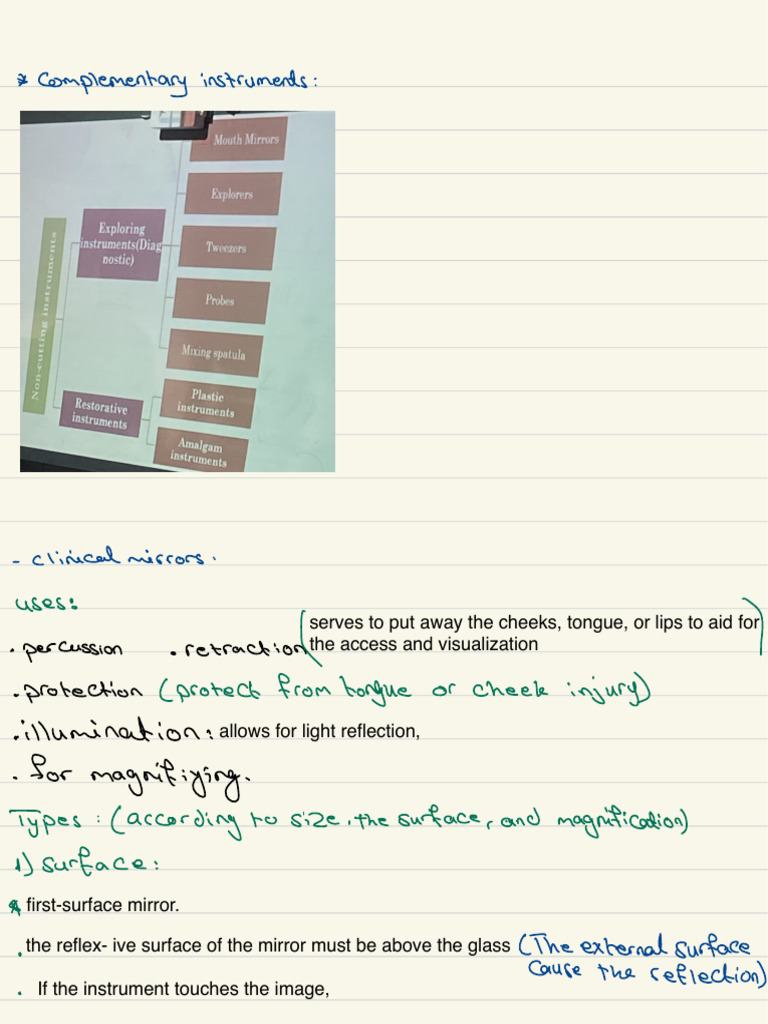 * Complementary instruments:
Mouth Mirrors
Explorers
Exploring
instruments(Diag
nostic)
Tweezers
Non-cutting instruments
Probes
Mixing spatula
Restorative
instruments
Plastic
instruments
Amalgam
instruments
- clinical mirrors.
uses:
. percussion . retraction (serves to put away the cheeks, tongue, or lips to aid for
the access and visualization)
. protection (protect from tongue or cheek injury)
. illumination: allows for light reflection,
. for magnifiying.
Types: (according to size, the surface, and magnification)
1) surface:
* first-surface mirror.
. the reflex- ive surface of the mirror must be above the glass (The external surface
cause the reflection)
. If the instrument touches the image,